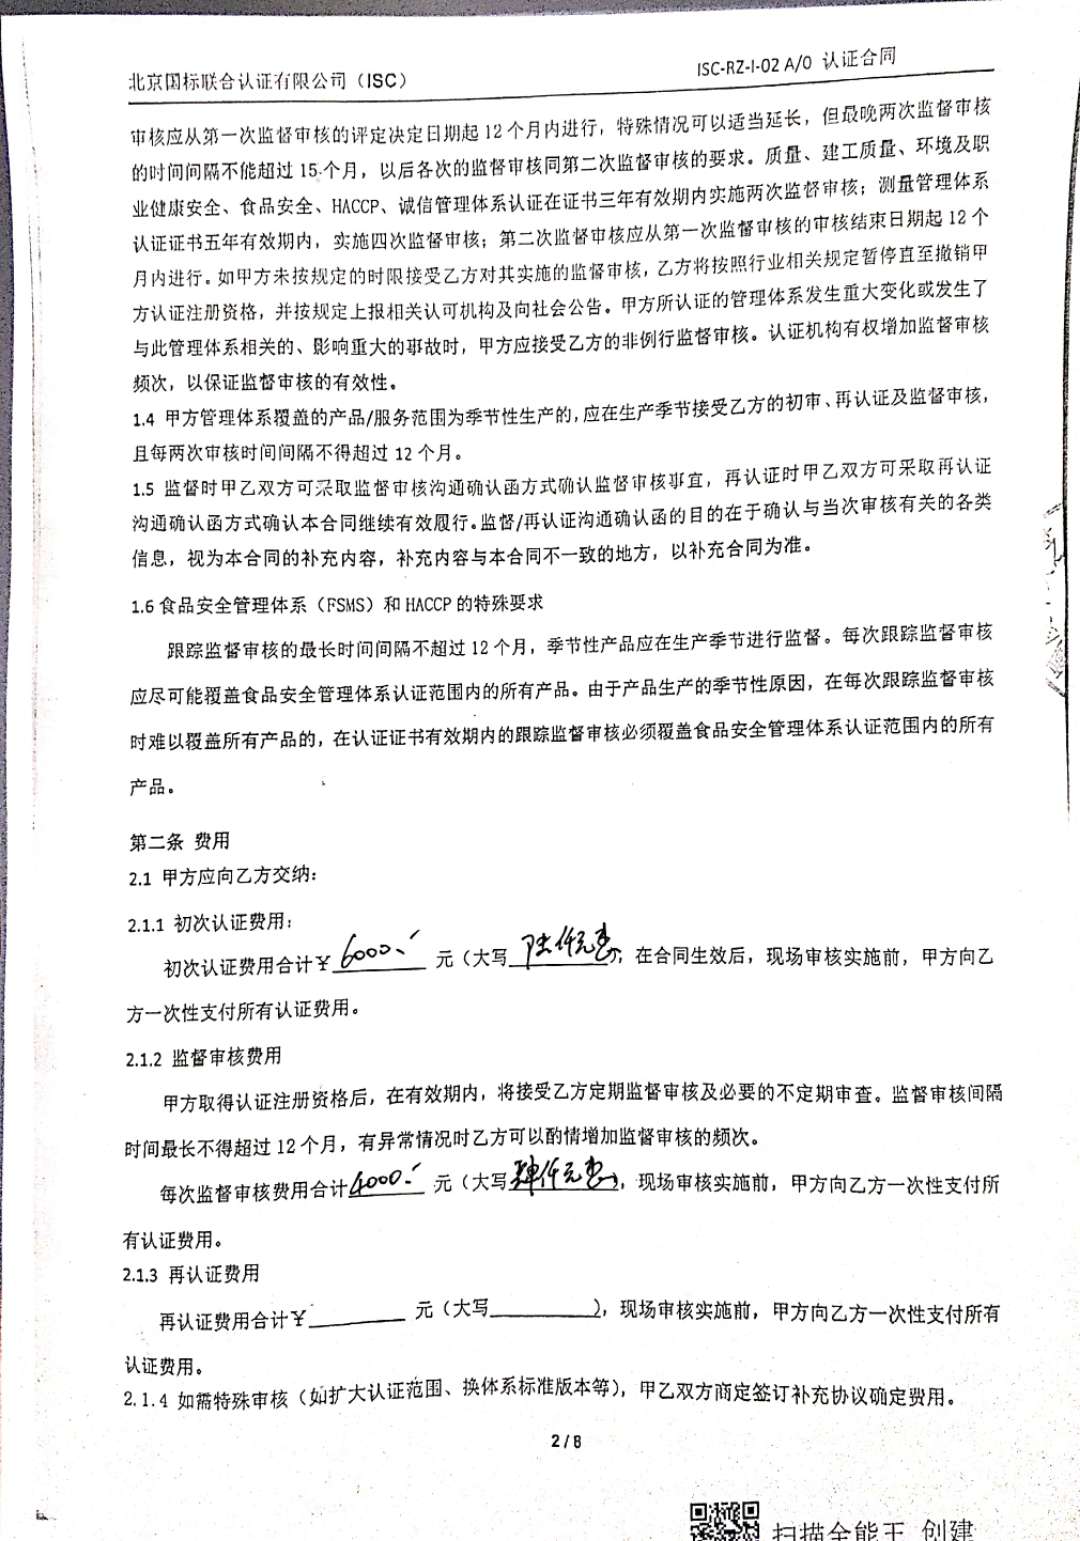 北京国标联合认证有限公司（ISC）
ISC-RZ-I-02 A/0 认证合同
审核应从第一次监督审核的评定决定日期起 12 个月内进行，特殊情况可以适当延长，但最晚两次监督审核
的时间间隔不能超过 15 个月，以后各次的监督审核同第二次监督审核的要求。质量、建工质量、环境及职
业健康安全、食品安全、HACCP、诚信管理体系认证在证书三年有效期内实施两次监督审核；测量管理体系
认证证书五年有效期内，实施四次监督审核；第二次监督审核应从第一次监督审核的审核结束日期起 12 个
月内进行。如甲方未按规定的时限接受乙方对其实施的监督审核，乙方将按照行业相关规定暂停直至撤销甲
方认证注册资格，并按规定上报相关认可机构及向社会公告。甲方所认证的管理体系发生重大变化或发生了
与此管理体系相关的、影响重大的事故时，甲方应接受乙方的非例行监督审核。认证机构有权增加监督审核
频次，以保证监督审核的有效性。
1.4 甲方管理体系覆盖的产品/服务范围为季节性生产的，应在生产季节接受乙方的初审、再认证及监督审核，
且每两次审核时间间隔不得超过 12 个月。
1.5 监督时甲乙双方可采取监督审核沟通确认函方式确认监督审核事宜，再认证时甲乙双方可采取再认证
沟通确认函方式确认本合同继续有效履行。监督/再认证沟通确认函的目的在于确认与当次审核有关的各类
信息，视为本合同的补充内容，补充内容与本合同不一致的地方，以补充合同为准。
1.6 食品安全管理体系（FSMS）和 HACCP 的特殊要求
跟踪监督审核的最长时间间隔不超过 12 个月，季节性产品应在生产季节进行监督。每次跟踪监督审核
应尽可能覆盖食品安全管理体系认证范围内的所有产品。由于产品生产的季节性原因，在每次跟踪监督审核
时难以覆盖所有产品的，在认证证书有效期内的跟踪监督审核必须覆盖食品安全管理体系认证范围内的所有
产品。
第二条 费用
2.1 甲方应向乙方交纳：
2.1.1 初次认证费用：
初次认证费用合计￥6000.- 元（大写 陆仟元整），在合同生效后，现场审核实施前，甲方向乙
方一次性支付所有认证费用。
2.1.2 监督审核费用
甲方取得认证注册资格后，在有效期内，将接受乙方定期监督审核及必要的不定期审查。监督审核间隔
时间最长不得超过 12 个月，有异常情况时乙方可以酌情增加监督审核的频次。
每次监督审核费用合计4000.- 元（大写 肆仟元整），现场审核实施前，甲方向乙方一次性支付所
有认证费用。
2.1.3 再认证费用
再认证费用合计￥________ 元（大写________），现场审核实施前，甲方向乙方一次性支付所有
认证费用。
2.1.4 如需特殊审核（如扩大认证范围、换体系标准版本等），甲乙双方商定签订补充协议确定费用。
2 / 8
扫描全能王 创建